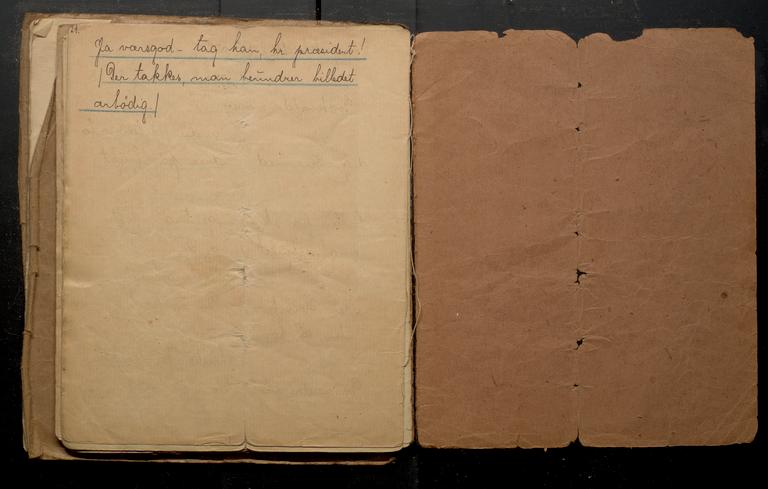 21.
Ja værsgod - tag han, hr. præsident!
/ Der takkes, man beundrer billedet
arbødig /